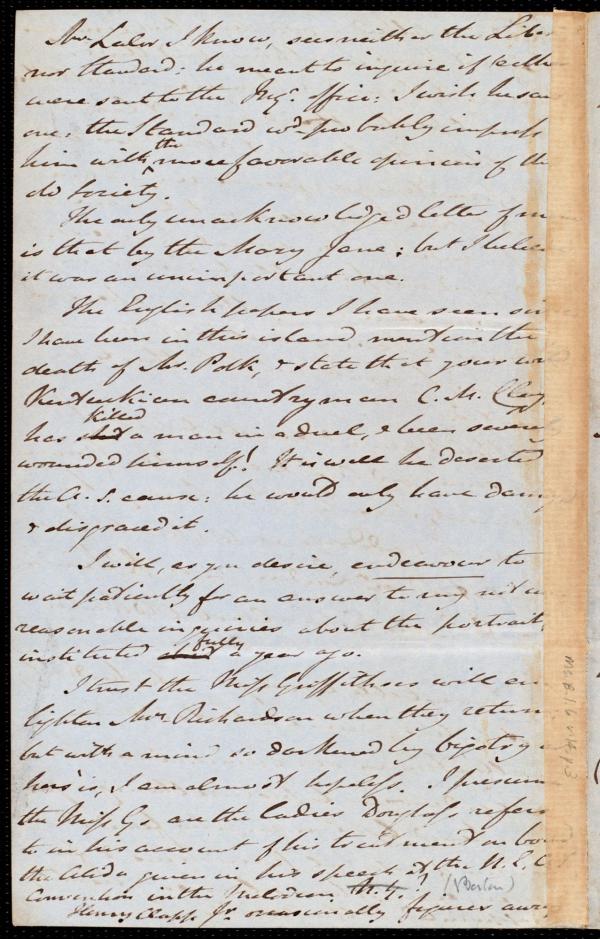 Mr Lalor I know, sees neither the Liber
nor Standard: he meant to inquire if either
were sent to the Reg.r office: I wish he saw
one; the Standard wd probably impress
him with the more favorable opinion of the
do Society.
The only unacknowledged letter from
is that by the Mary Jane; but I believe
it was an unimportant one.
The English papers I have seen since
I have been in this island mention the
death of Mr. Polk, & state that your
Kentuckian countryman C. M. Clay,
killed
has shot a man in a duel, & been severely
wounded himself! It is well he deserted
the A. S. cause: he would only have damag
& disgraced it.
I will, as you desire, endeavour to
wait patiently for an answer to my not un
reasonable inquiries about the portrait,
instituted fully a year ago.
I trust the Miss Griffiths will en
lighten Mrs Richardson when they return
but with a mind so darkened by bigotry as
hers is, I am almost hopeless. I presume
the Miss Gs are the ladies Douglass refers
to in his account of his treatment on board
the Alida given in his speech at the N. E. A.
Convention in the Melodeon, ! (Boston)
Henry Clapp Jr. occasionally figures away